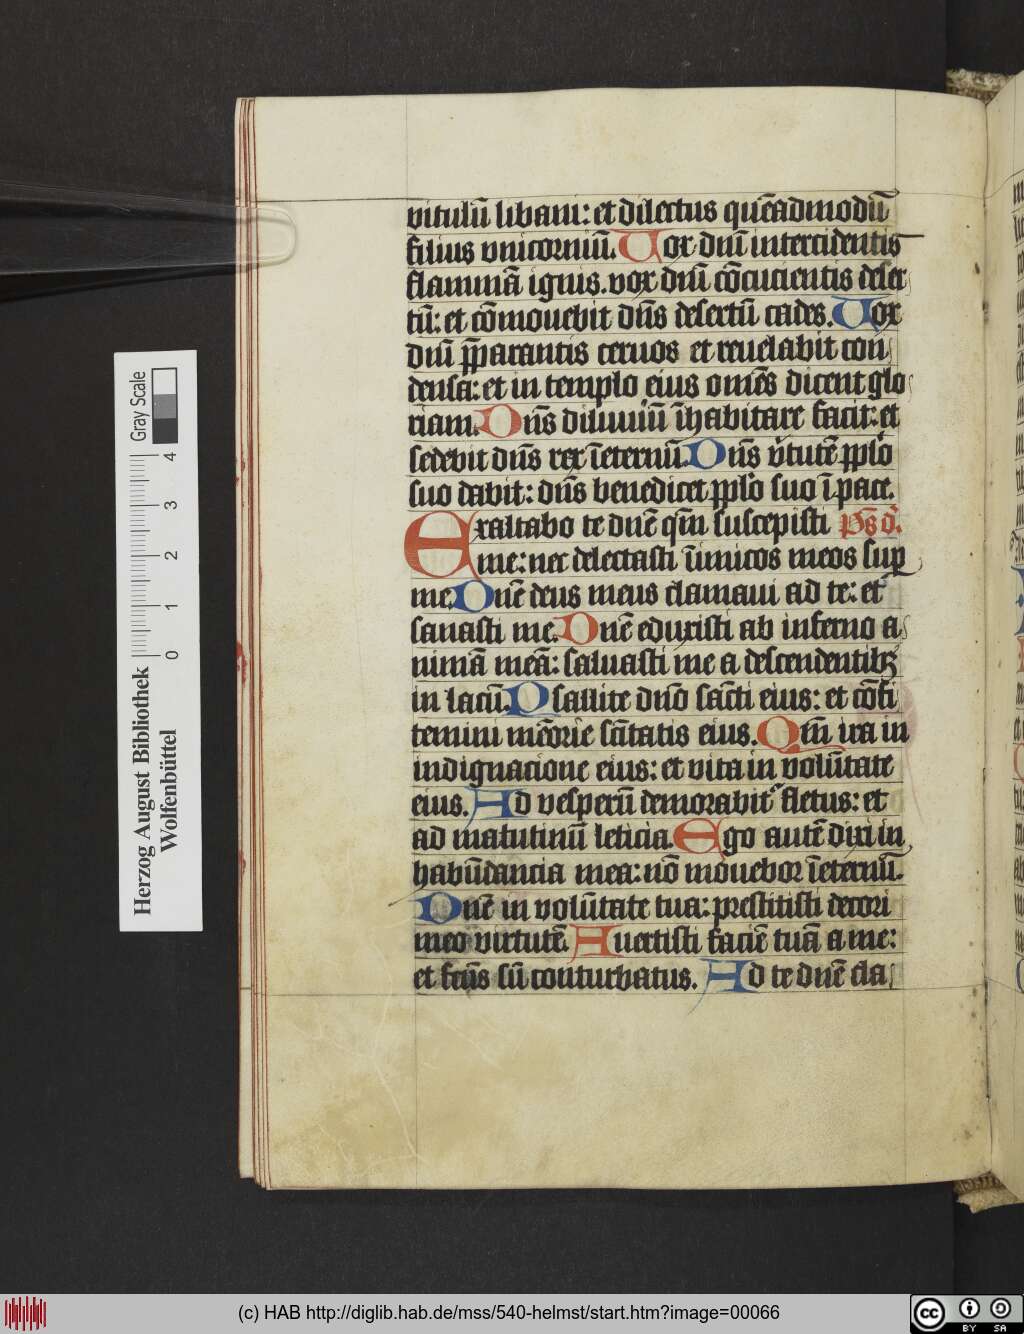 vitulū libani: et dilectus quēadmodū
filius vnicorniū. Uox dnī intercidentis
flammā ignis. vox dnī cōcucientis deser
tū: et cōmouebit dn̄s desertū cades. Uox
dnī p̄parantis ceruos et reuelabit con
densa: et in templo eius omēs dicent glo
riam. Dn̄s diluuiū īhabitare facit: et
sedebit dn̄s rex īeternū. Dn̄s v̇tutē pplo
suo dabit: dn̄s benedicet pplo suo ī pace.
Exaltabo te dnē qm̄ suscepisti Ps̄ d.
me: nec delectasti īimicos meos sup
me. Dnē deus meus clamaui ad te: et
sanasti me. Dnē eduxisti ab inferno a
nimā meā: saluasti me a descendentibꝫ
in lacū. Psallite dn̄o sācti eius: et cōfi
temini mēorie sc̄itatis eius. Qm̄ ira in
indignacione eius: et vita in volūtate
eius. Ad vesperū demorabit᷑ fletus: et
ad matutinū leticia. Ego autē dixi in
habūdancia mea: nō mouebor īeternū.
Dnē in volūtate tua: prestitisti decori
meo virtutē. Auertisti faciē tuā a me:
et fc̄us sū conturbatus. Ad te dnē cla
Herzog August Bibliothek
Wolfenbüttel
0 1 2 3 4
Gray Scale
(c) HAB http://diglib.hab.de/mss/540-helmst/start.htm?image=00066
cc BY SA